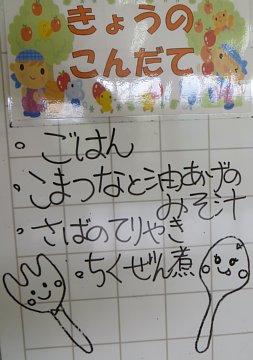 きょうの
こんだて
・ごはん
・こまつなと油あげの
みそ汁
・さばのてりやき
・ちくぜん煮